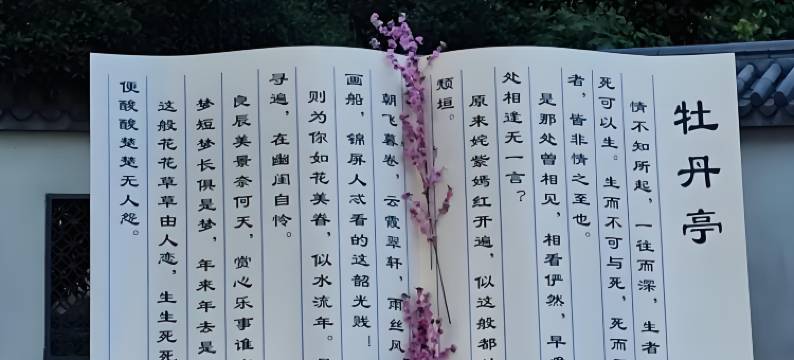 牡丹亭
情不知所起，一往而深，生者
死可以生。生而不可与死，死而
者，皆非情之至也。
是那处曾相见，相看俨然，早
处相逢无一言？
原来姹紫嫣红开遍，似这般都
颓垣。
朝飞暮卷，云霞翠轩，雨丝风
画船，锦屏人忒看的这韶光贱！
则为你如花美眷，似水流年。
寻遍，在幽闺自怜。
良辰美景奈何天，赏心乐事谁
梦短梦长俱是梦，年来年去是
这般花花草草由人恋，生生死死
便酸酸楚楚无人怨。